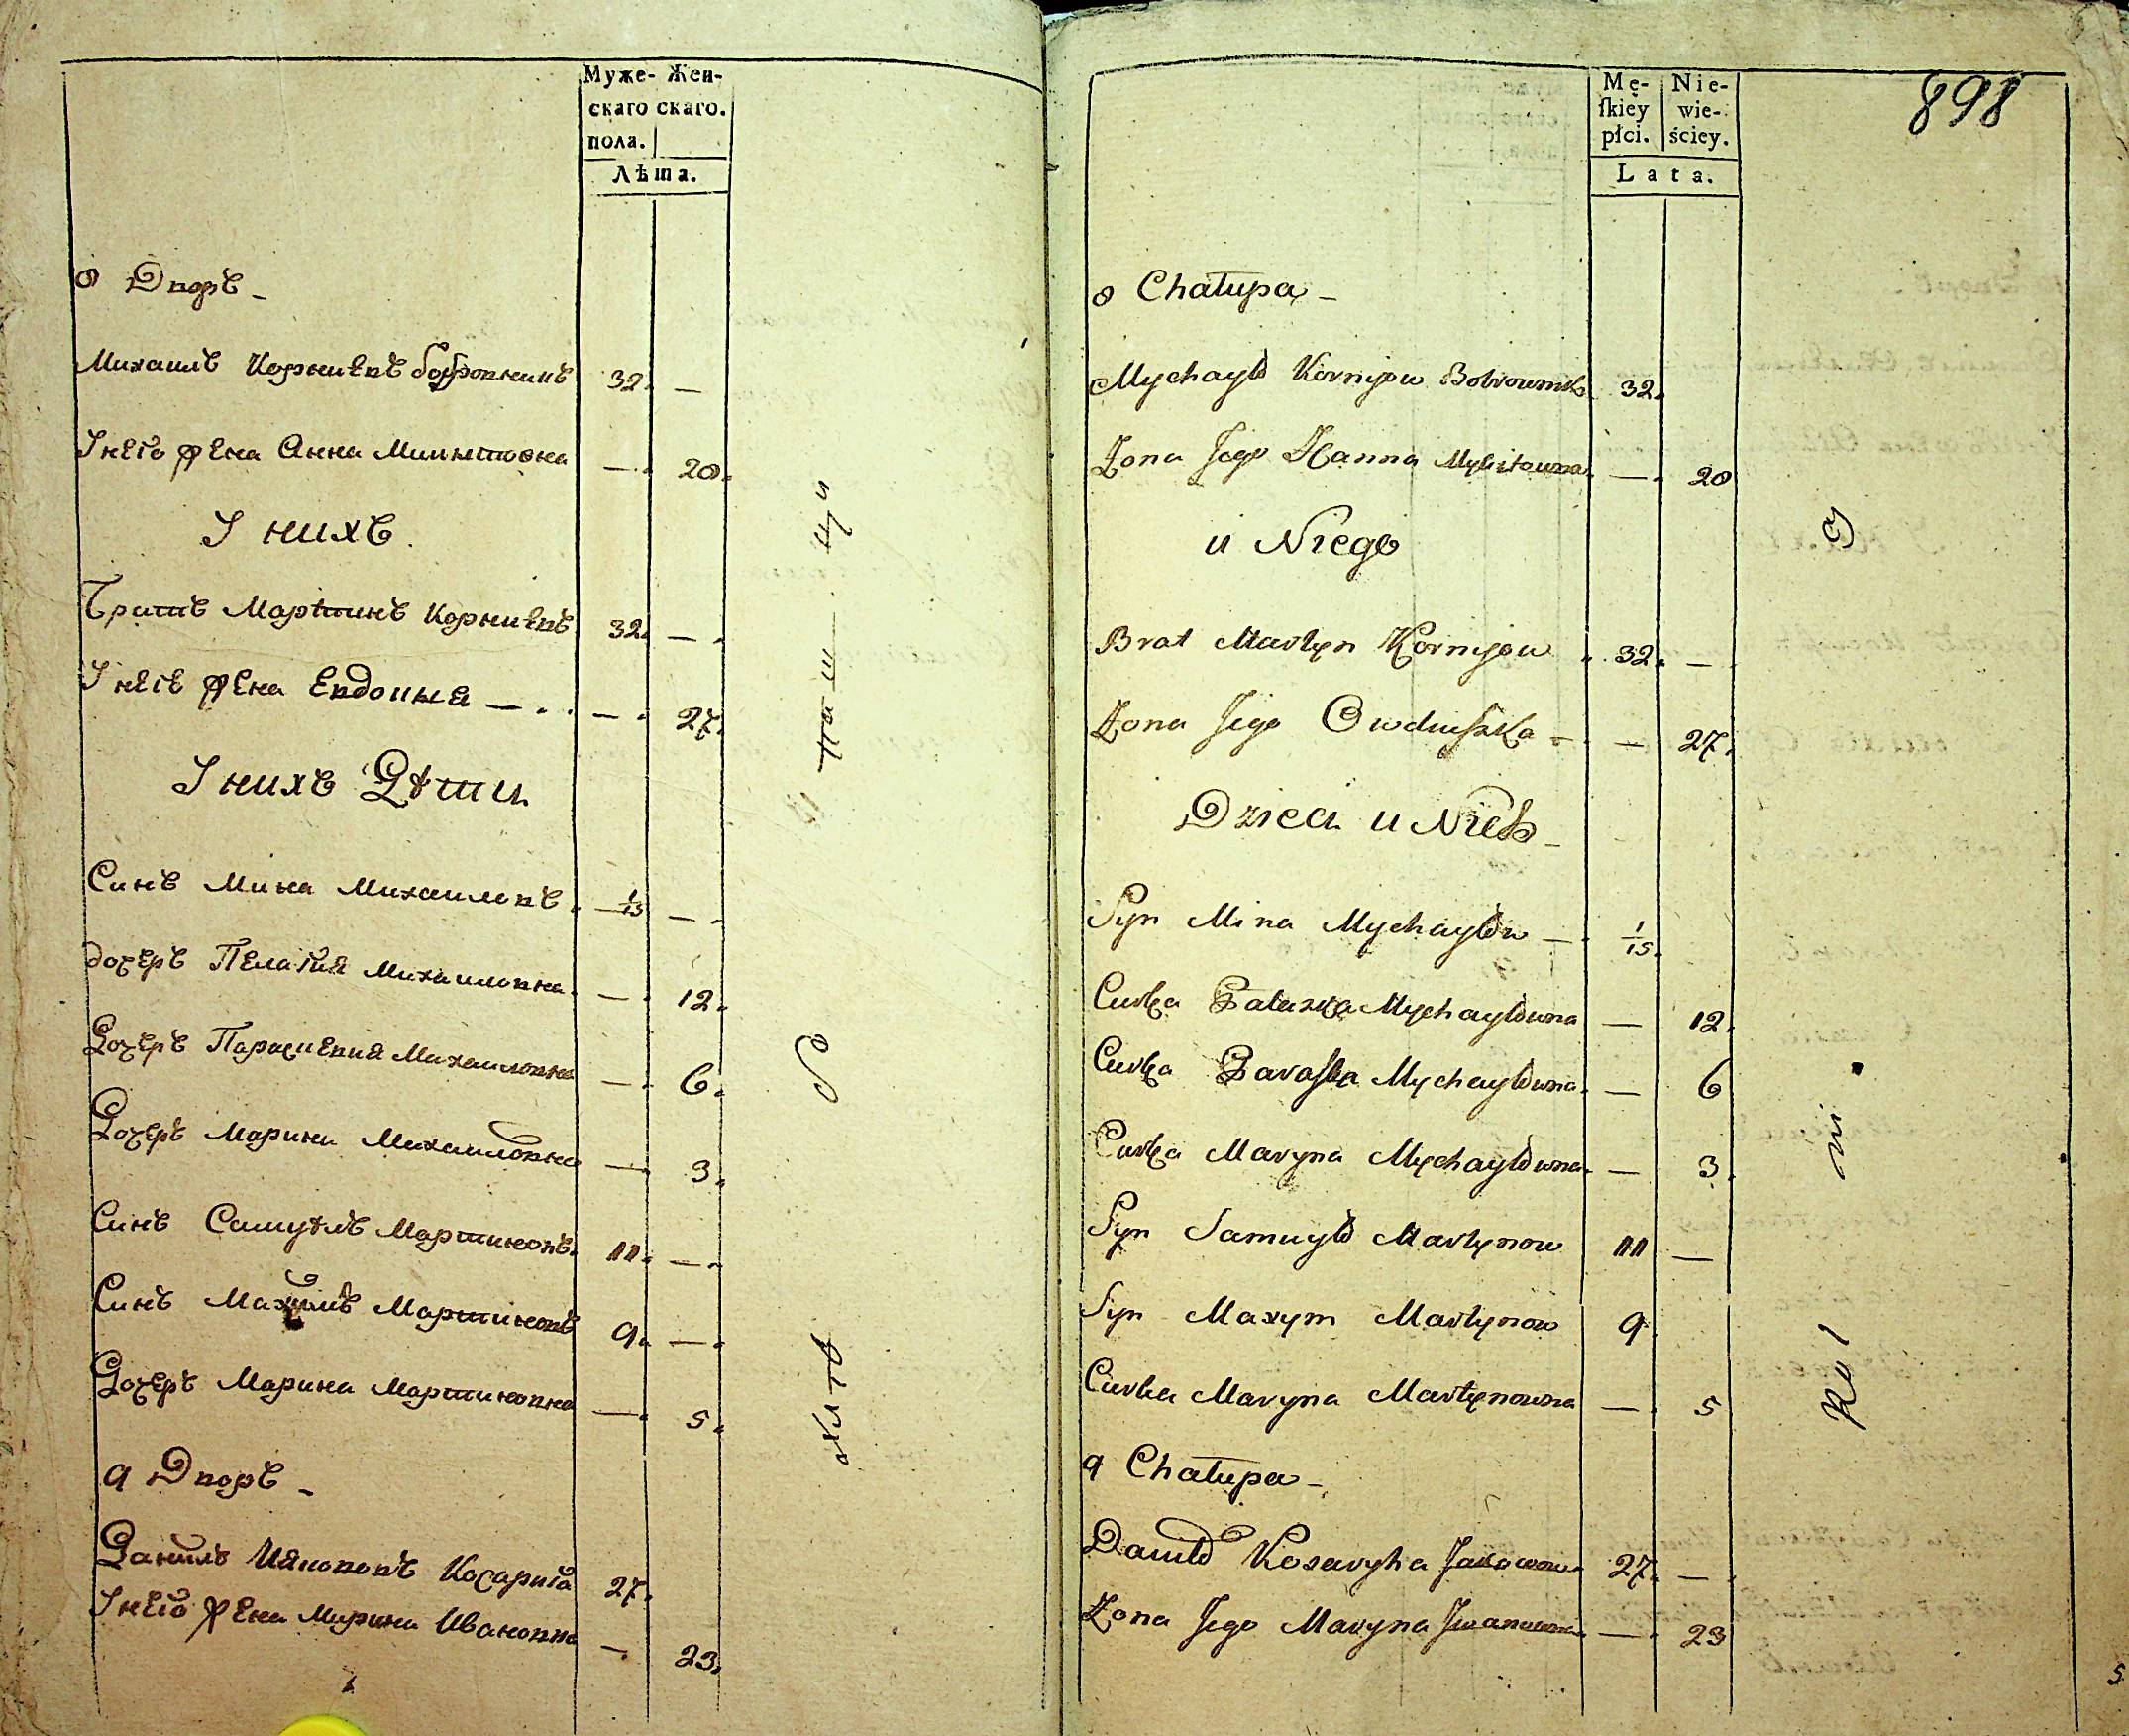 Муже- Жен-
скаго скаго.
пола.
Лѣта.
8 Дворъ
Михаилъ Корниѣвъ Бобровникъ 32. —
У него жена Анна Микитовна — 20.
У нихъ
Братъ Мартинъ Корниѣвъ 32. —
У него жена Евдокия — 27.
У нихъ Дѣти
Синъ Мина Михаиловъ 1/15 —
дочеръ Пелагия Михаиловна — 12.
Дочеръ Параскевия Михаиловна — 6.
Дочеръ Марина Михаиловна — 3.
Синъ Самуилъ Мартиновъ 11. —
Синъ Мартиновъ 9. —
Дочеръ Марина Мартиновна — 5.
9 Дворъ
Данилъ Косарига 27.
У него жена Марина Ивановна — 23.
898
Mę- Nie-
ſkiey wie-
płci. ściey.
Lata.
8 Chałupa
Mychayło Kornijow Bobrownik 32.
Żona Jego Hanna Mykitowna — 20
u Niego
Brat Martyn Kornijow 32. —
Żona Jego Owduſzka — 27.
Dzieci u Nich
Syn Mina Mychayłow 1/15.
Curka Pałazka Mychayłowna — 12.
Curka Paraſka Mychayłowna — 6
Curka Maryna Mychayłowna — 3.
Syn Samuyło Martynow 11 —
Syn Maxym Martynow 9.
Curka Maryna Martynowna — 5
9 Chałupa
Daniło Kosaryha Jakowow 27. —
Żona Jego Maryna Iwanowna — 23